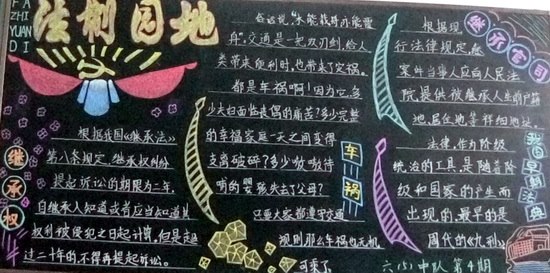 FA
ZHI
YUAN
DI
法制园地
继承权
根据我国《继承法》
第八条规定,继承权纠纷
提起诉讼的期限为二年,
自继承人知道或者应当知道其
权利被侵犯之日起计算,但是超
过二十年的,不得再提起诉讼。
俗话说“水能载舟亦能覆
舟”,交通是一把双刃剑,给人
类带来便利时,也带来了灾祸。
都是车祸啊!因为它,多
少夫妇面临丧偶的痛苦?多少完整
的幸福家庭一天之间变得
支离破碎?多少嗷嗷待
哺的婴孩失去了父母?
只要大家都遵守交通
规则那么车祸也无机
可乘了。
车祸
继承官司
根据现
行法律规定,
案件当事人应向人民法
院,提供被继承人生前户籍
地、居住地等详细地址。
我国早期法典
法律,作为阶级
统治的工具,是随着阶
级和国家的产生而
出现的,最早的是
周代的《九刑》
六(5)中队 第4期